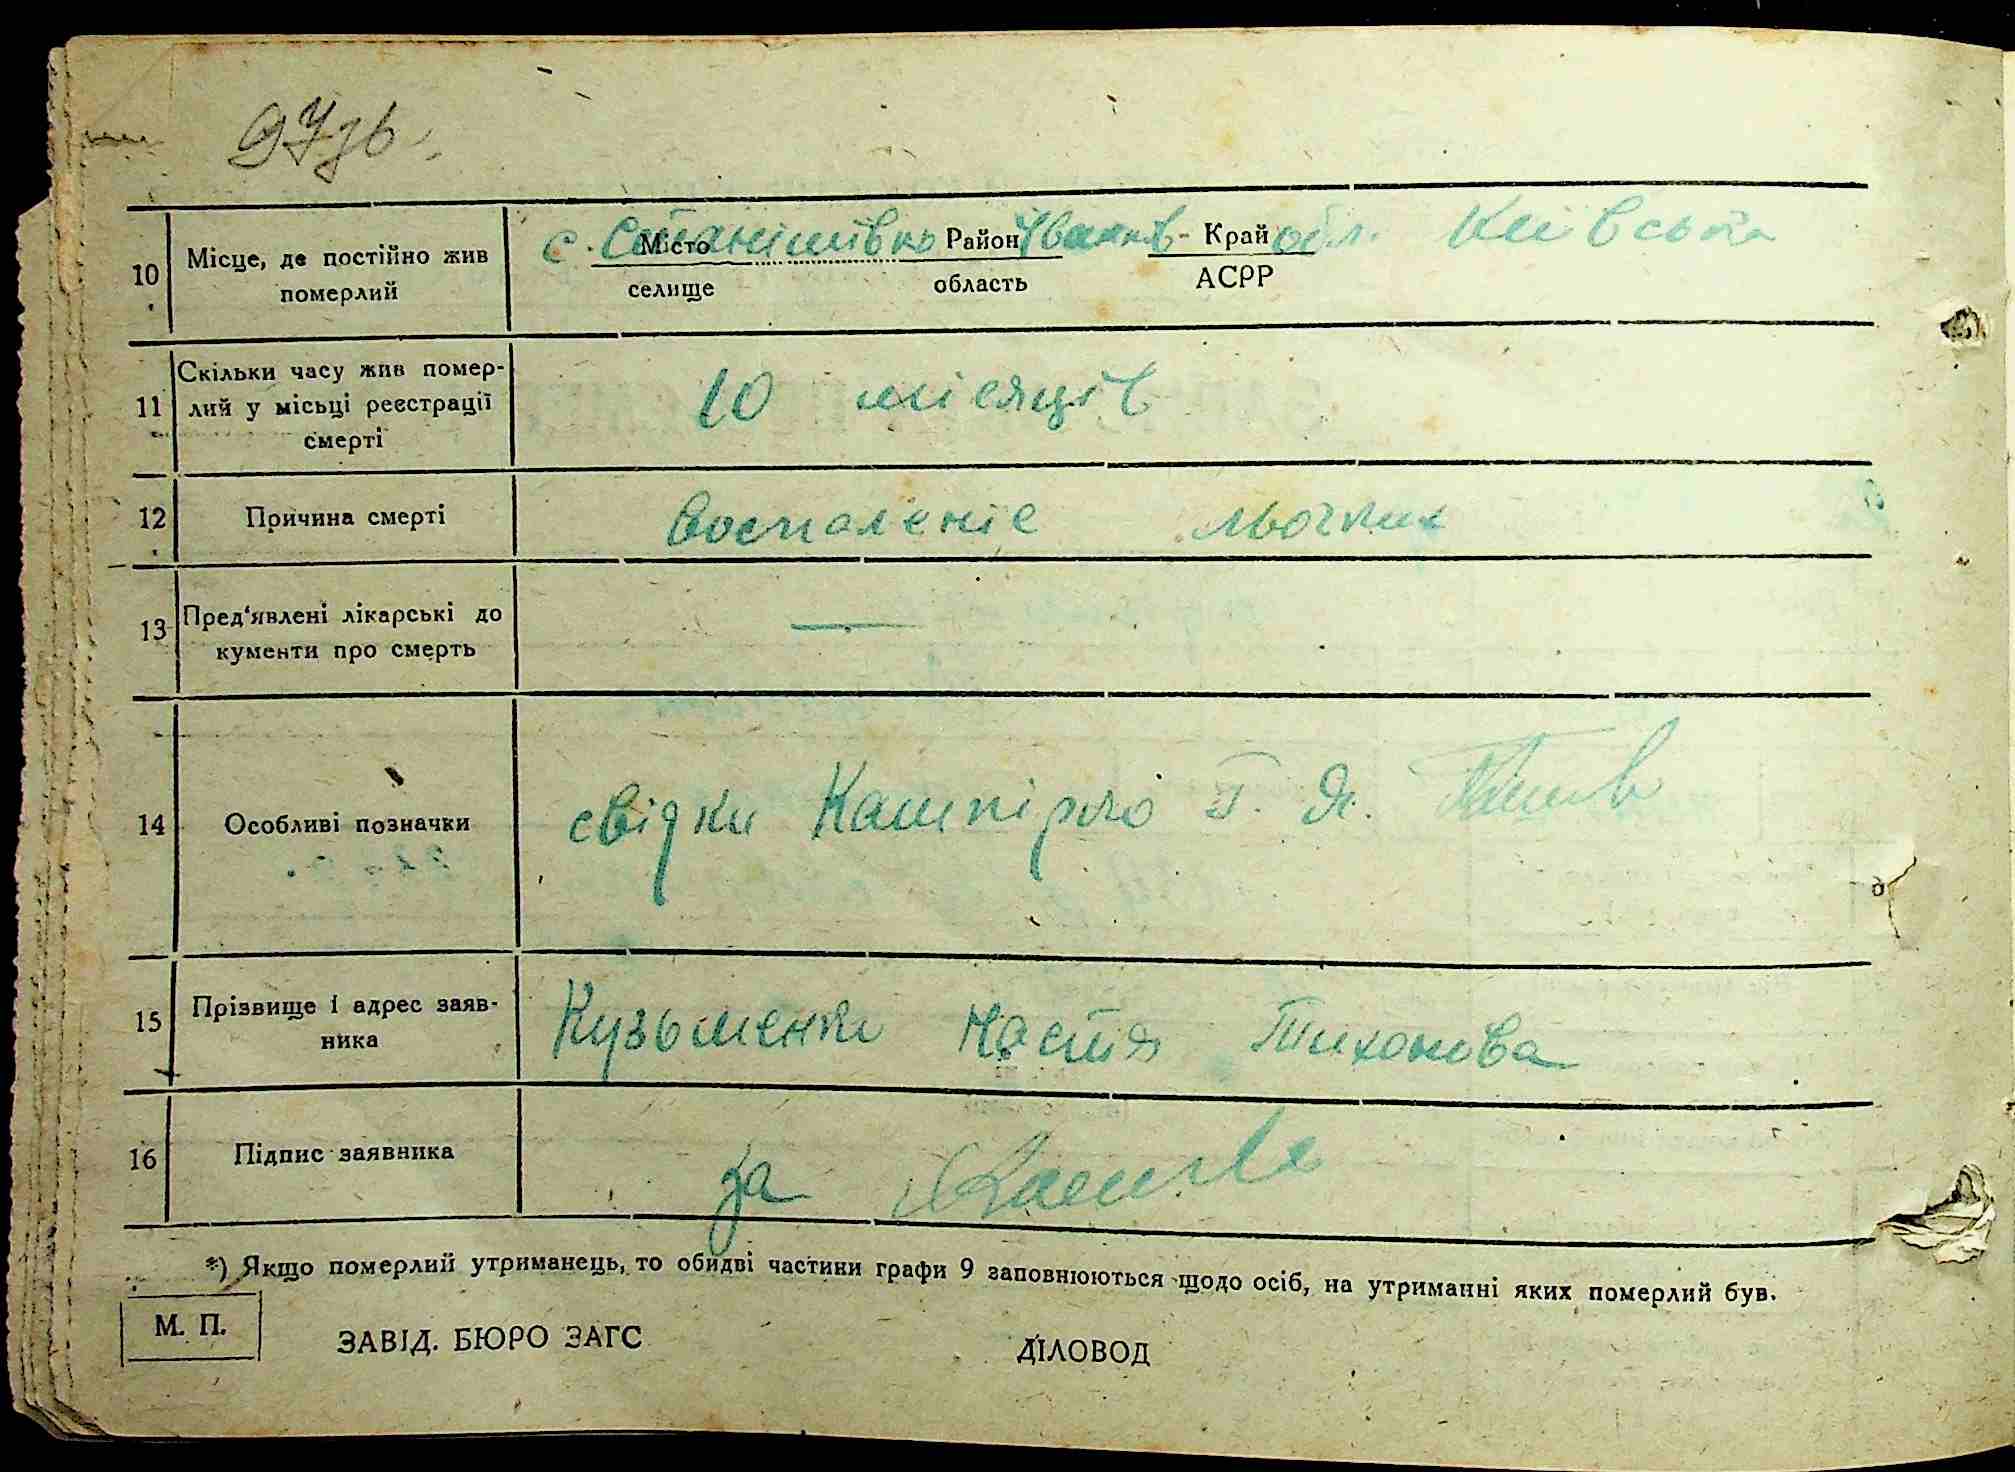 97зв.
10 Місце, де постійно жив померлий
с. Станішівка Місто Район Іванків- Край обл. Київська
селище область АСРР
11 Скільки часу жив помер-
лий у місьці реєстрації
смерті
10 місяців
12 Причина смерті воспаленіе льогких
13 Пред'явлені лікарські до
кументи про смерть
—
14 Особливі позначки свідки Кашпірло Т. Я.
15 Прізвище і адрес заяв-
ника
Кузьменко Настя Тихонова
16 Підпис заявника за
*) Якщо померлий утриманець, то обидві частини графи 9 заповнюються щодо осіб, на утриманні яких померлий був.
М. П.
ЗАВІД. БЮРО ЗАГС ДІЛОВОД